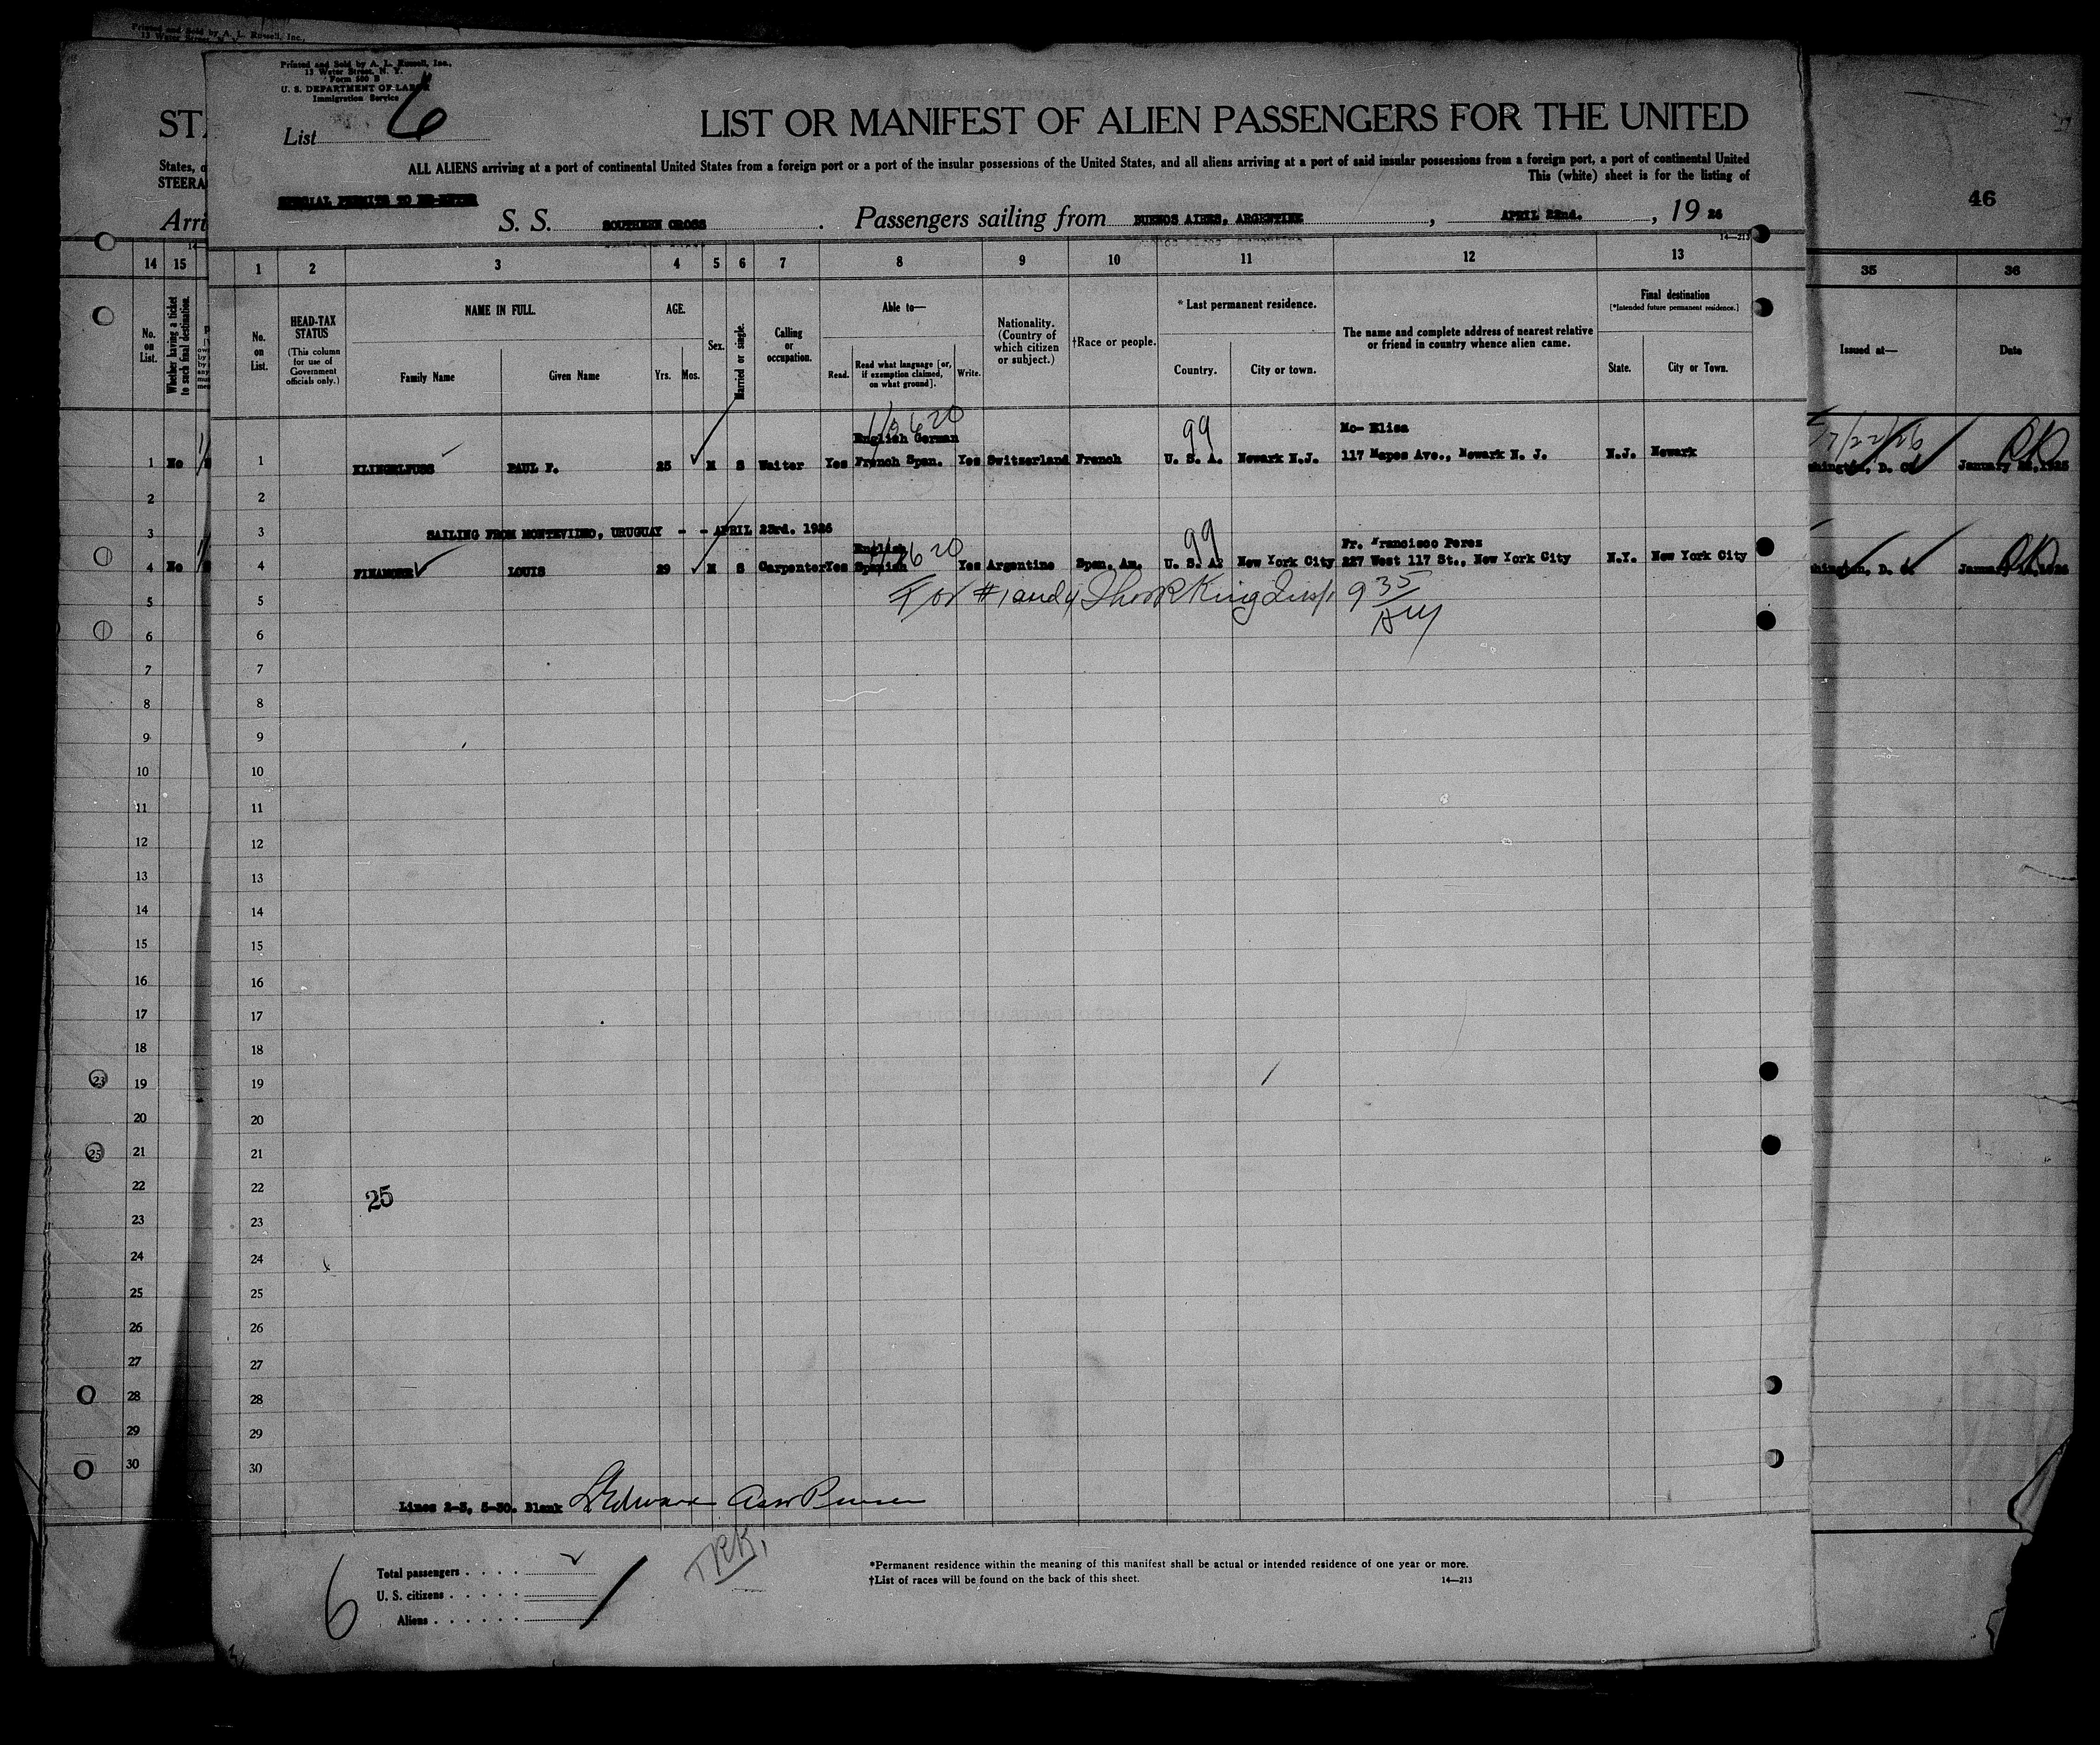 Printed and Sold by A. L. Russell, Inc.,
Printed and Sold by A. L. Russell, Inc.,
13 Water Street, N. Y.
Form 500 B
U. S. DEPARTMENT OF LABOR
Immigration Service
List 6
LIST OR MANIFEST OF ALIEN PASSENGERS FOR THE UNITED
ALL ALIENS arriving at a port of continental United States from a foreign port or a port of the insular possessions of the United States, and all aliens arriving at a port of said insular possessions from a foreign port, a port of continental United
This (white) sheet is for the listing of
SPECIAL PERMITS TO RE-ENTER
S. S. SOUTHERN CROSS. Passengers sailing from BUENOS AIRES, ARGENTINE, APRIL 22nd., 19 26
14—213
46
14 15 1 2 3 4 5 6 7 8 9 10 11 12 13 35 36
No. on List.
Whether having a ticket to such final destination.
No. on List.
HEAD-TAX STATUS
(This column for use of Government officials only.)
NAME IN FULL.
Family Name
Given Name
AGE.
Yrs. Mos.
Sex.
Married or single.
Calling or occupation.
Able to—
Read.
Read what language [or, if exemption claimed, on what ground].
Write.
Nationality. (Country of which citizen or subject.)
†Race or people.
* Last permanent residence.
Country.
City or town.
The name and complete address of nearest relative or friend in country whence alien came.
Final destination
[*Intended future permanent residence.]
State.
City or Town.
Issued at—
Date
99
English German
Mo- Elisa
1 No 1 KLINGELFUSS PAUL F. 25 M S Waiter Yes French Span. Yes Switzerland French U. S. A. Newark N.J. 117 Mapes Ave., Newark N. J. N.J. Newark
2 2
3 3 SAILING FROM MONTEVIDEO, URUGUAY - - APRIL 23rd. 1926
99
English
Fr. Francisco Perez
4 No 4 FINAMORE LOUIS 29 M S Carpenter Yes Spanish Yes Argentine Span. Am. U. S. A. New York City 227 West 117 St., New York City N.Y. New York City
5 5 For #1 and 4
6 6
7 7
8 8
9 9
10 10
11 11
12 12
13 13
14 14
15 15
16 16
17 17
18 18
19 19
20 20
21 21
22 22
25
23 23
24 24
25 25
26 26
27 27
28 28
29 29
30 30
Lines 2-3, 5-30. Blank
6
Total passengers
U. S. citizens
Aliens
*Permanent residence within the meaning of this manifest shall be actual or intended residence of one year or more.
†List of races will be found on the back of this sheet.
14—213